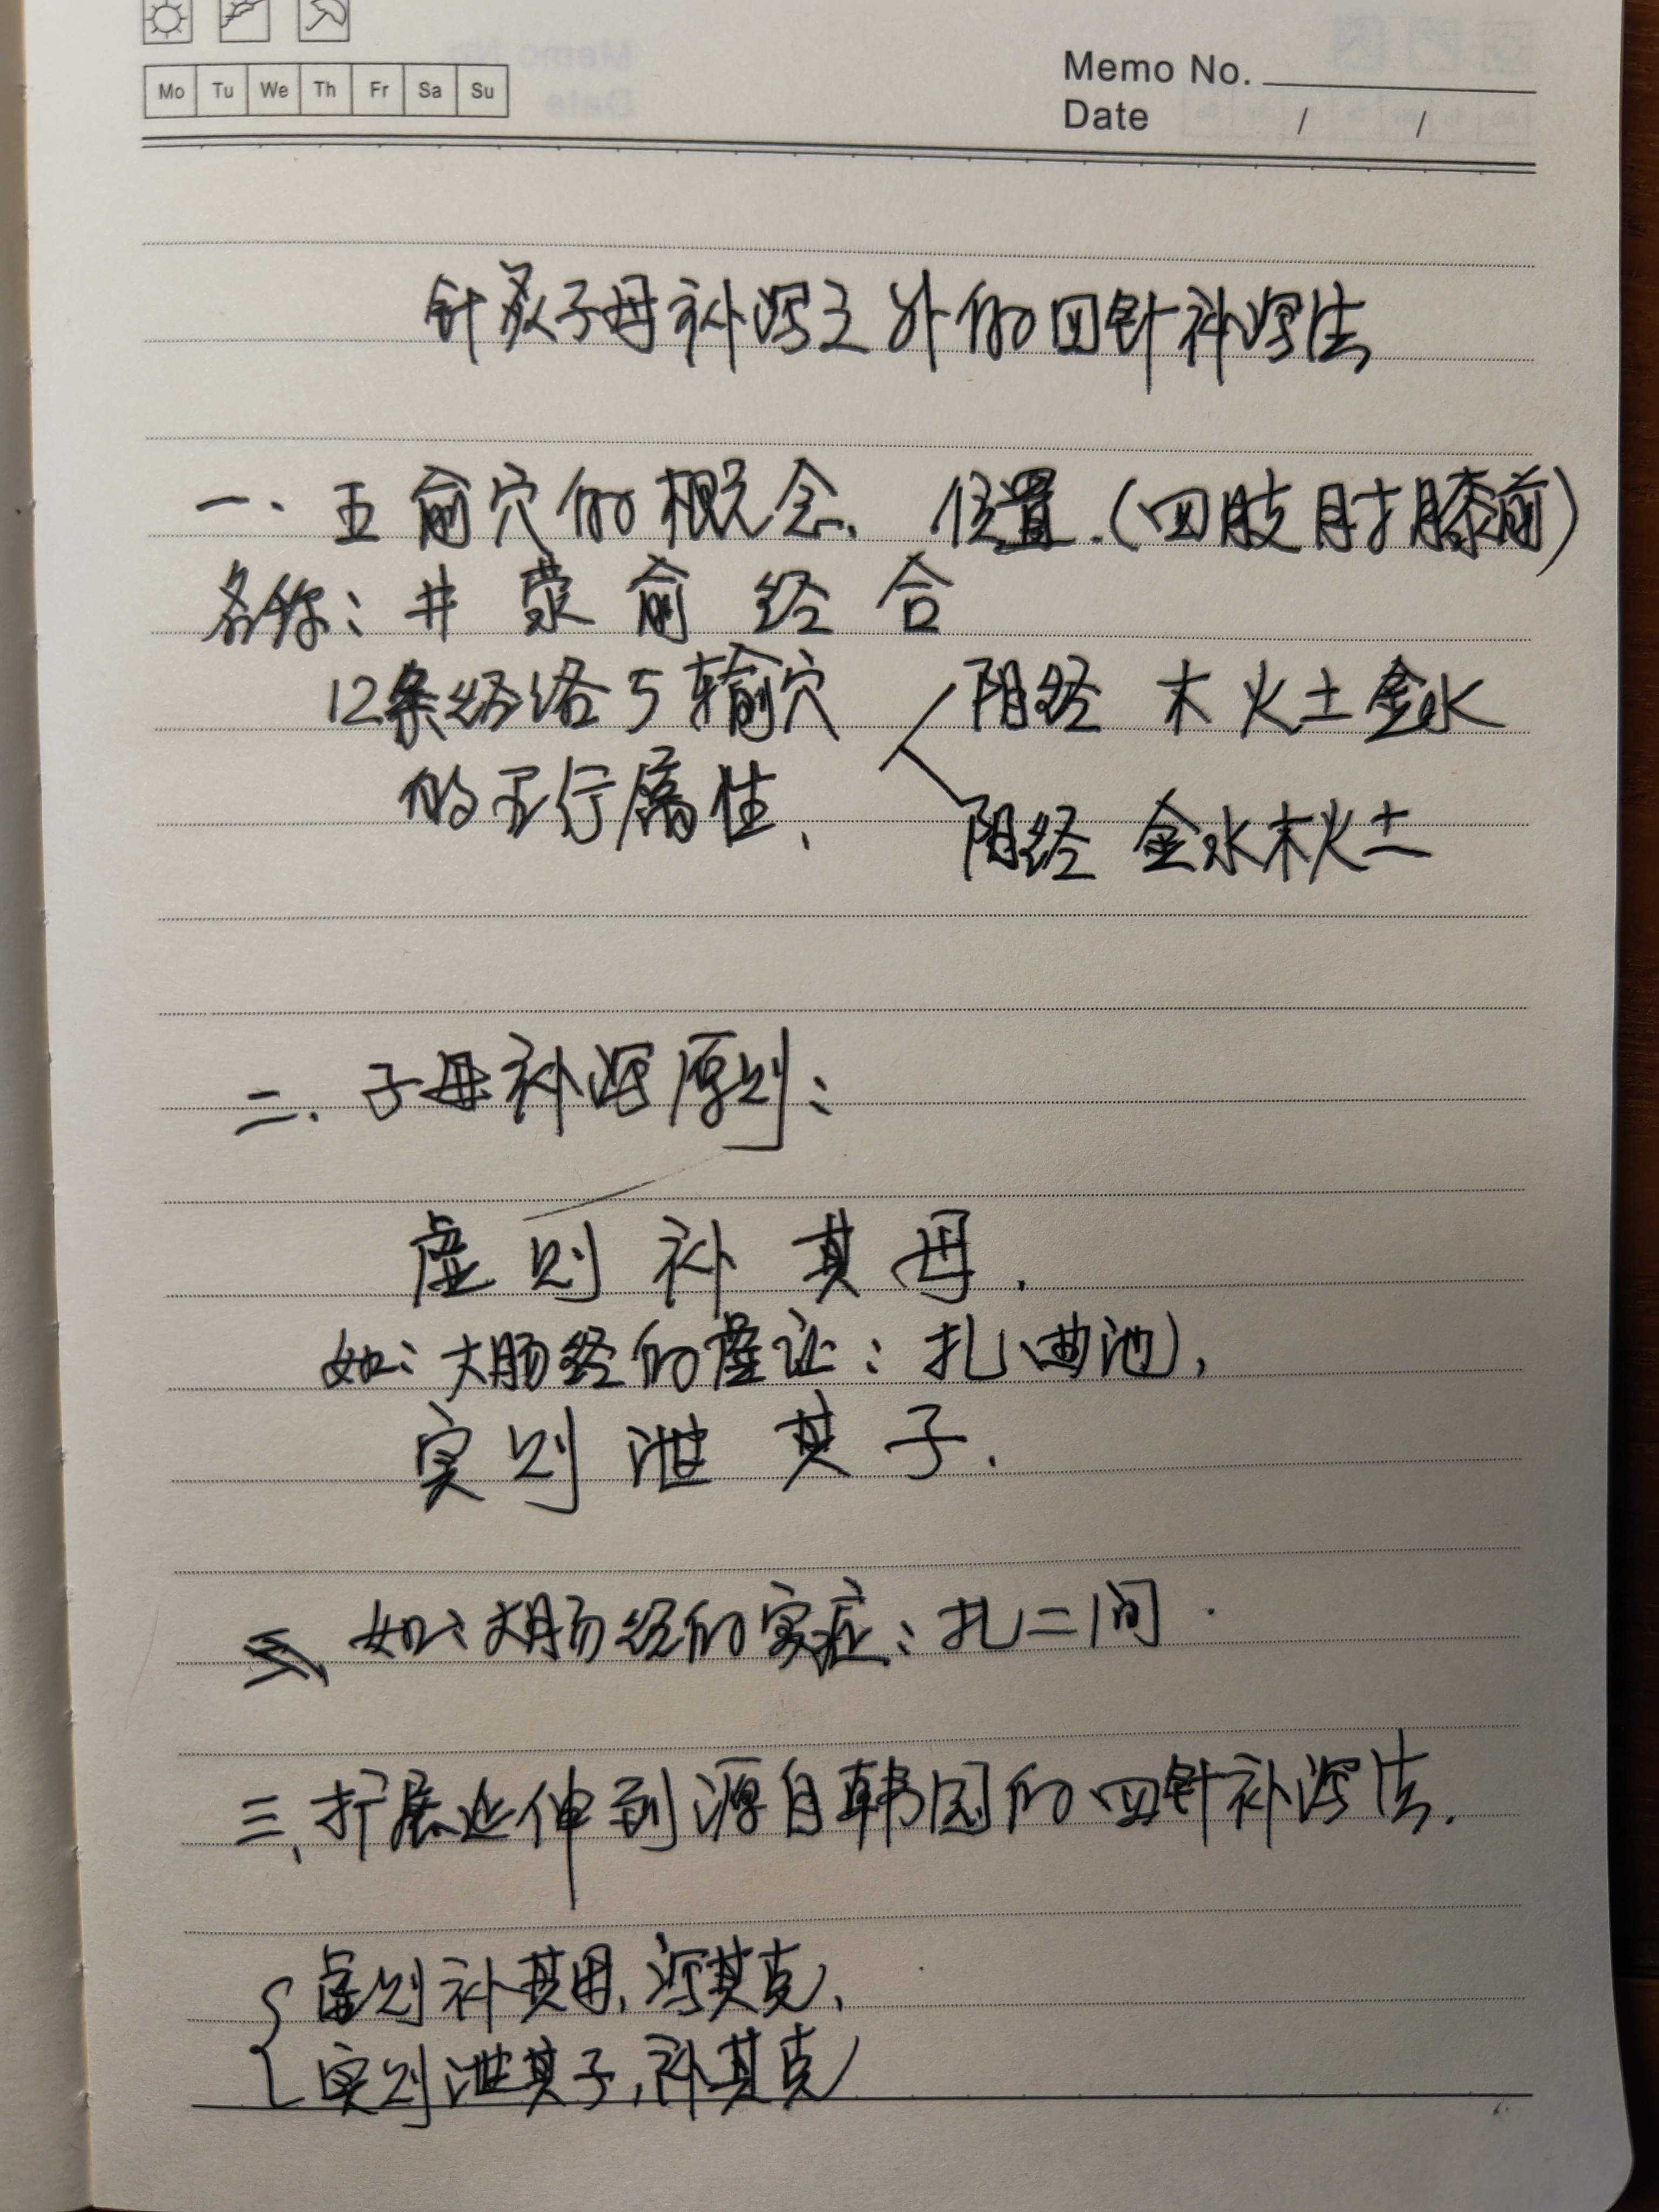 Mo Tu We Th Fr Sa Su
Memo No.
Date / /
针灸子母补泻之外的四针补泻法
一、五俞穴的概念、位置.(四肢肘膝前)
名称: 井 荥 俞 经 合
12条经络5输穴 阴经 木火土金水
的五行属性、 阳经 金水木火土
二、子母补泻原则:
虚则补其母.
如: 大肠经的虚证: 扎(曲池),
实则泄其子.
如: 大肠经的实症: 扎二间.
三、扩展延伸到源自韩国的四针补泻法.
虚则补其母,泻其克,
实则泄其子,补其克